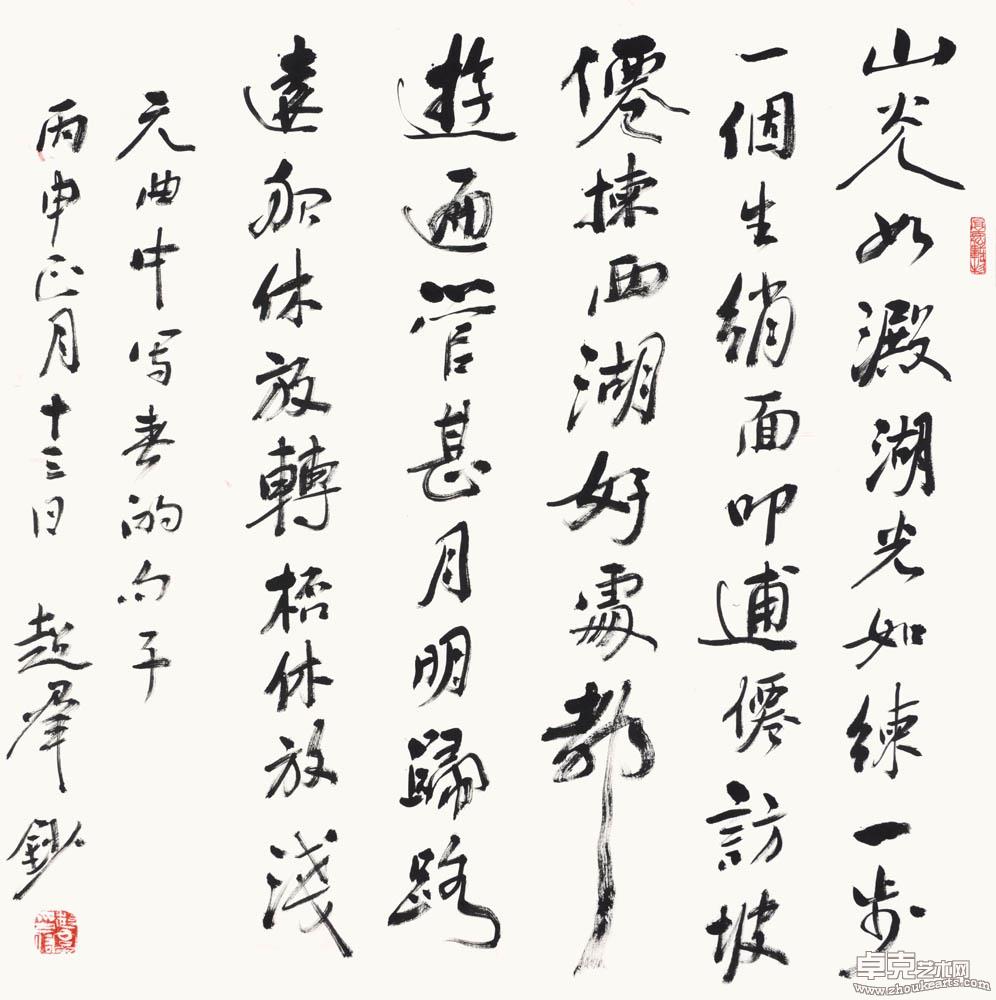 山光如澱湖光如練一步
一個生綃面叩逋僊訪坡
僊揀西湖好處都
遊遍管甚月明歸路
遠船休放轉桮休放淺
元曲中写春的句子
丙申正月十三日 鈔
卓克艺术网
www.zhoukearts.com